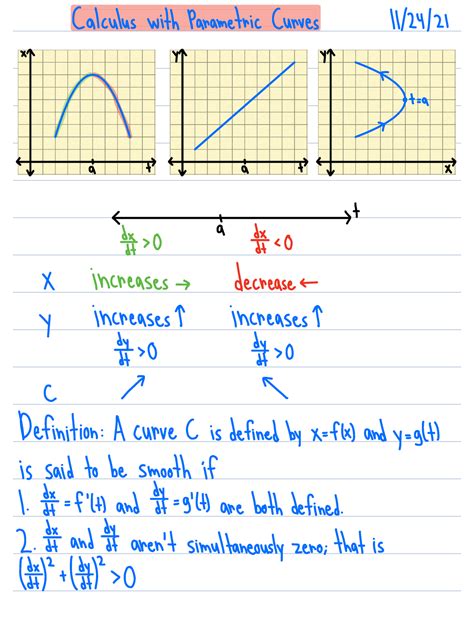 Calculus with Parametric Curves 11/24/21
x y y
t=a
a t a t x
t
a
dx/dt > 0 dx/dt < 0
X increases → decrease ←
Y increases ↑ increases ↑
dy/dt > 0 dy/dt > 0
C ↗ ↖
Definition: A curve C is defined by x=f(x) and y=g(t)
is said to be smooth if
1. dx/dt = f'(t) and dy/dt = g'(t) are both defined.
2. dx/dt and dy/dt aren't simultaneously zero; that is
(dx/dt)² + (dy/dt)² > 0